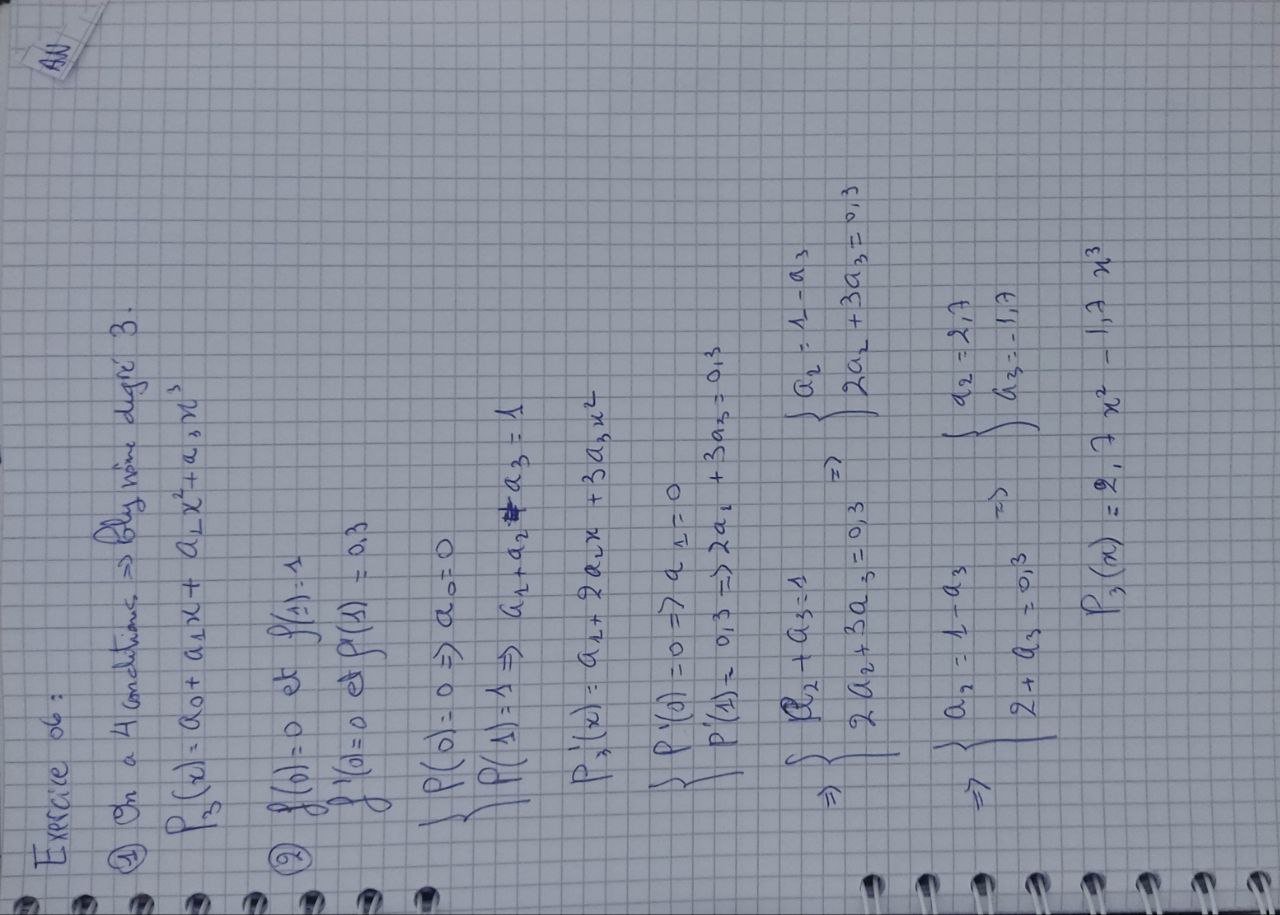 Exercice 06 :
AN
① On a 4 conditions => Polynôme degré 3.
P₃(x) = a₀ + a₁x + a₂x² + a₃x³
② f(0) = 0 et f(1) = 1
f'(0) = 0 et f'(1) = 0,3
P(0) = 0 => a₀ = 0
P(1) = 1 => a₁ + a₂ + a₃ = 1
P₃'(x) = a₁ + 2a₂x + 3a₃x²
P'(0) = 0 => a₁ = 0
P'(1) = 0,3 => 2a₂ + 3a₃ = 0,3
=> { a₂ + a₃ = 1 => { a₂ = 1 - a₃
2a₂ + 3a₃ = 0,3 2a₂ + 3a₃ = 0,3
=> { a₂ = 1 - a₃ => { a₂ = 2,7
2 + a₃ = 0,3 a₃ = -1,7
P₃(x) = 2,7 x² - 1,7 x³